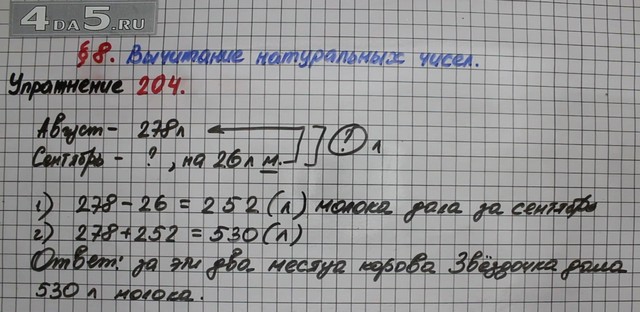 4DA5.RU
§8. Вычитание натуральных чисел.
Упражнение 204.
Август - 278л
Сентябрь - ?, на 26л м. ? л
1) 278 - 26 = 252 (л) молока дала за сентябрь
2) 278 + 252 = 530 (л)
Ответ: за эти два месяца корова Звёздочка дала
530 л молока.